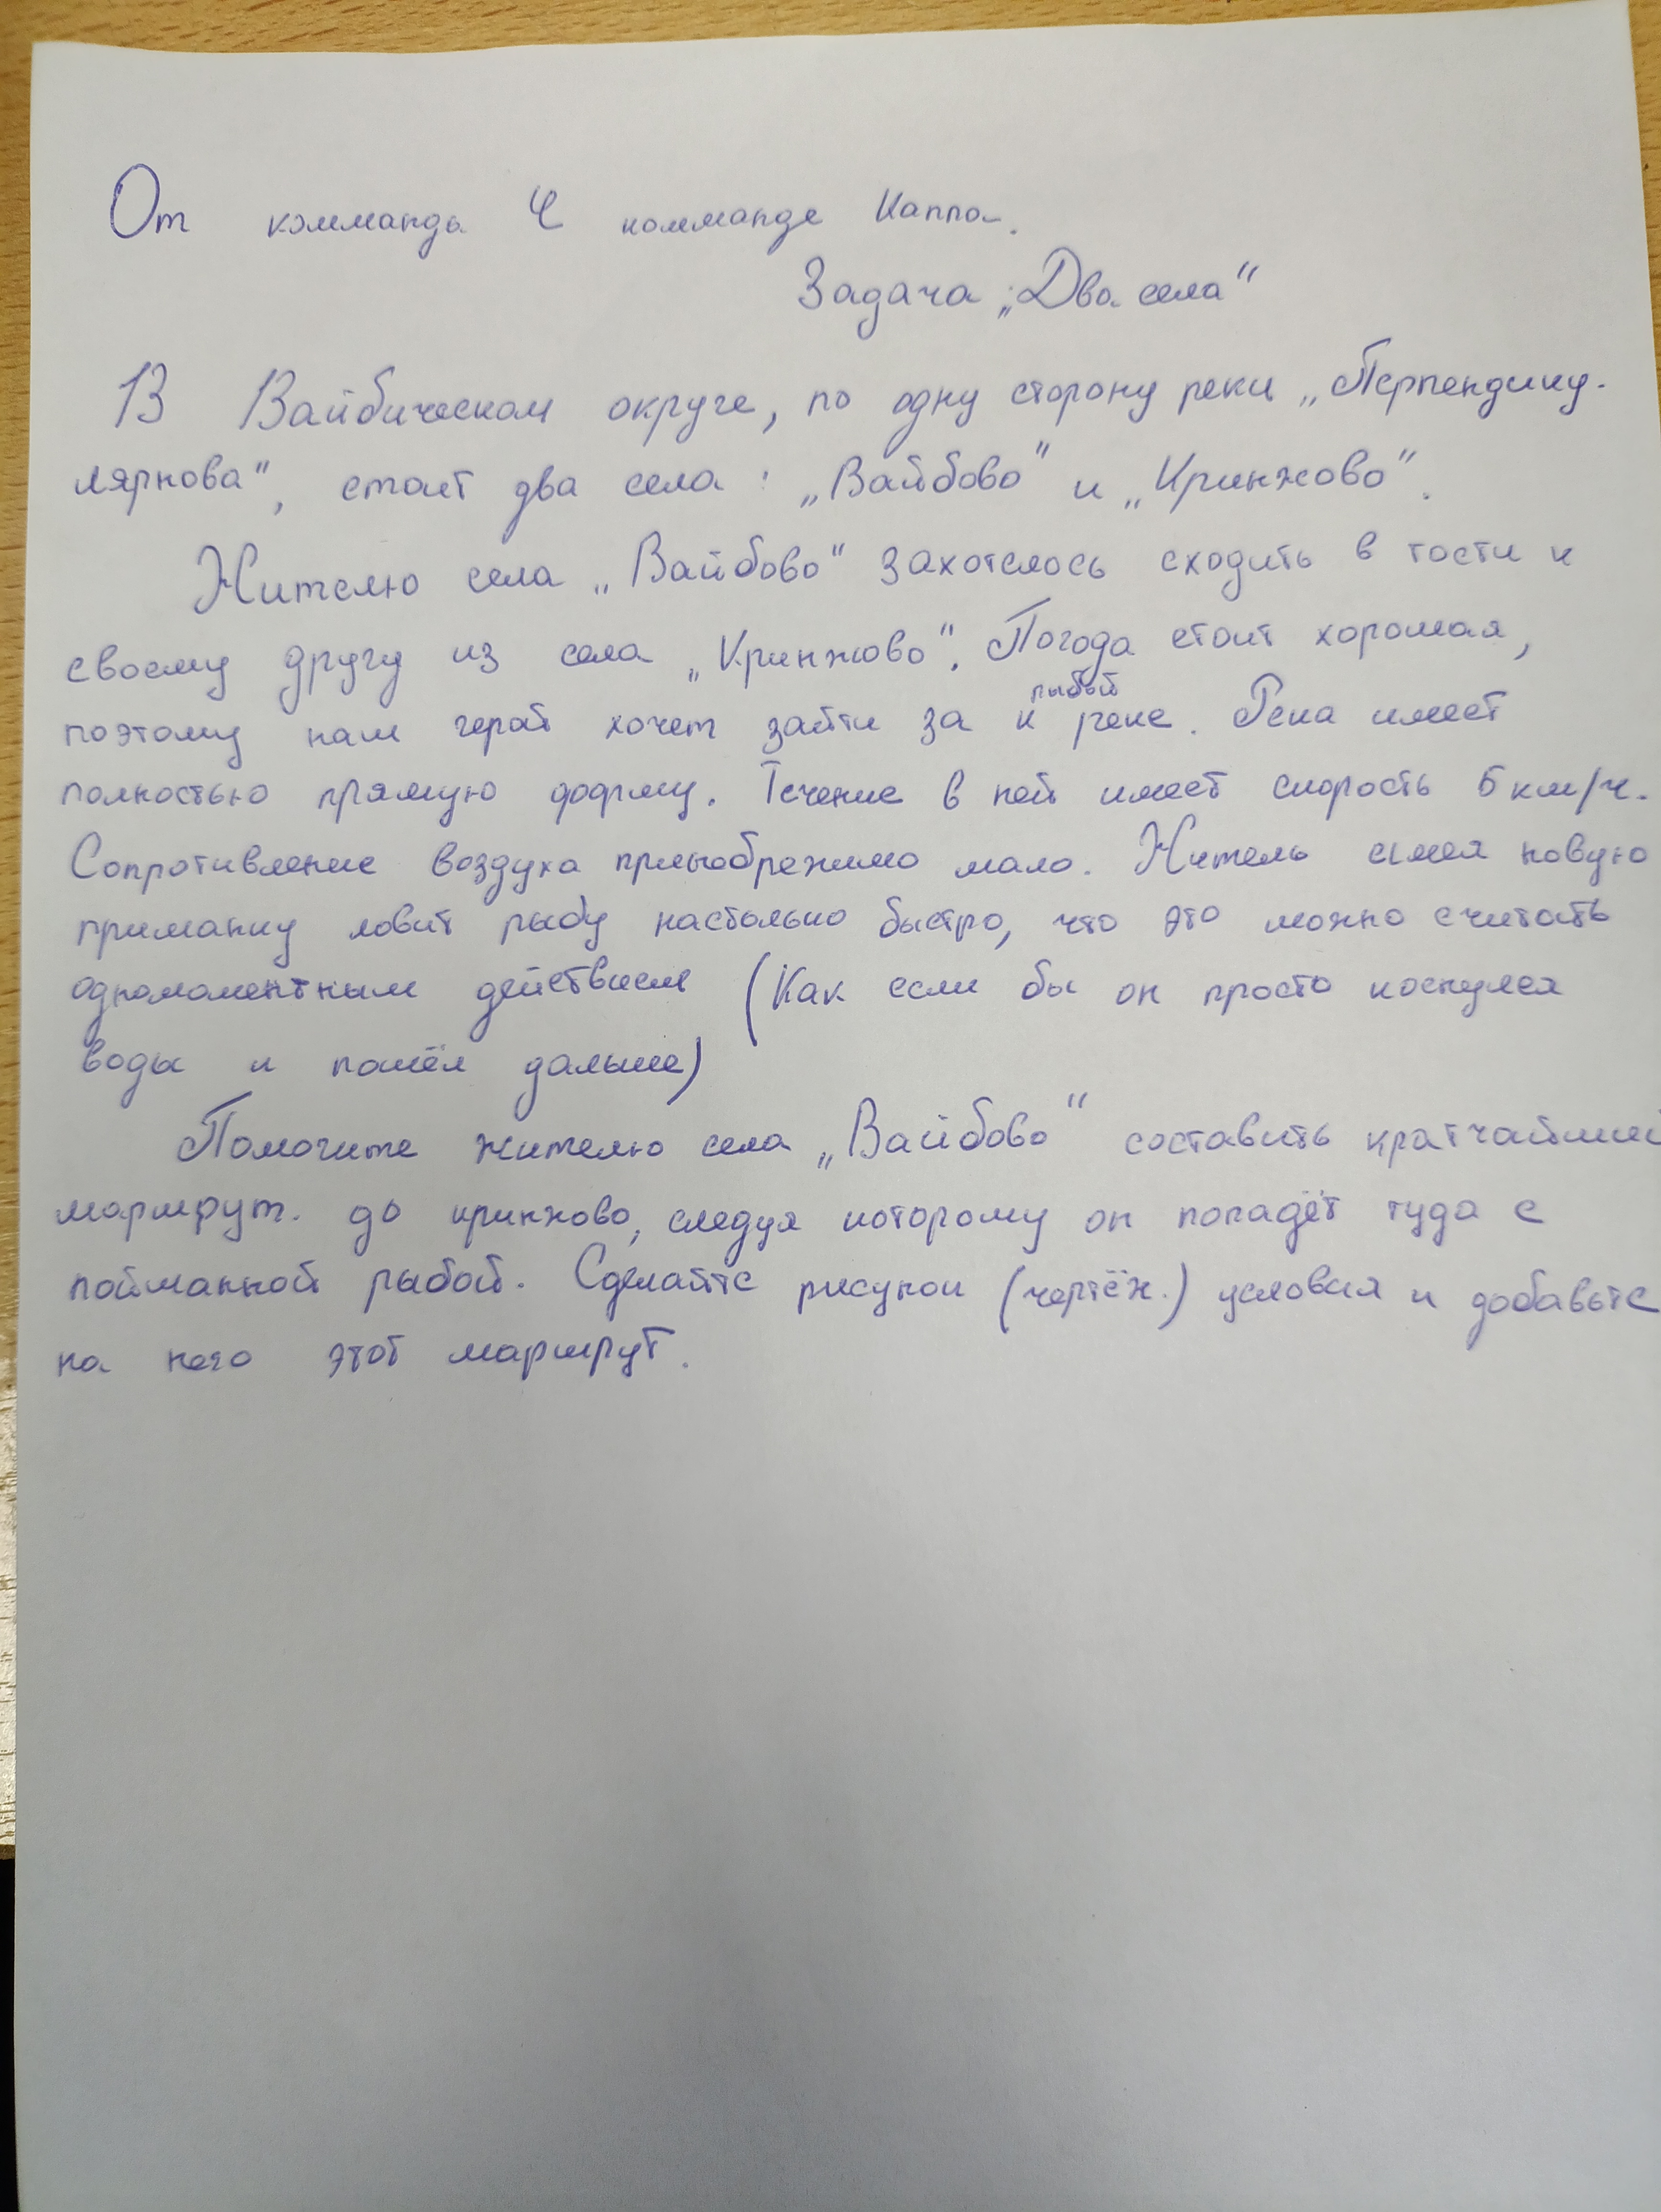 От комманды Ч комманде Каппа.
Задача „Два села“
В Вайбическом округе, по одну сторону реки „Перпендику-
лярнова“, стоит два села: „Вайбово“ и „Кринжово“.
Жителю села „Вайбово“ захотелось сходить в гости к
своему другу из села „Кринжово“. Погода стоит хорошая,
поэтому наш герой хочет зайти за рыбой к реке. Река имеет
полностью прямую форму. Течение в ней имеет скорость 5 км/ч.
Сопротивление воздуха принебрежимо мало. Житель имея новую
приманку ловит рыбу настолько быстро, что это можно считать
одномоментным действием (Как если бы он просто коснулся
воды и пошёл дальше)
Помогите жителю села „Вайбово“ составить кратчайший
маршрут до кринжово, следуя которому он попадёт туда с
пойманной рыбой. Сделайте рисунок (чертёж.) условия и добавьте
на него этот маршрут.